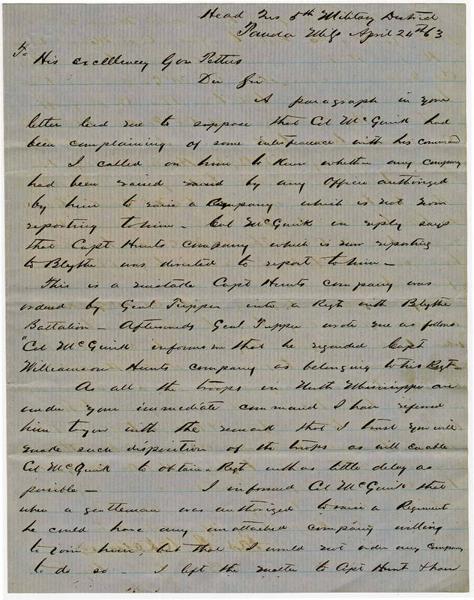 Head Qrs 5th Military District
Panola Miss April 24th 63
To His excellency Gov Pettus
Dr Sir
A paragraph in your
letter led me to suppose that Col McGuirk had
been complaining of some interference with his command
I called on him to know whether any company
had been raised raised by any officer authorized
by him to raise a Company which is not now
reporting to him - Col McGuirk in reply says
that Capt Hunts company which is now reporting
to Blythe was directed to report to him -
This is a mistake Capt Hunts company was
ordered by Genl Tupper into a Regt with Blythe
Battalion - Afterwards Genl Tupper wrote me as follows
"Col McGuirk informs me that he regarded Capt
Williamson Hunts company as belonging to his Regt"
As all the troops in North Mississippi are
under your immediate command I have referred
him to you with the remark that I trust you will
make such disposition of the troops as will enable
Col McGuirk to obtain a Regt with as little delay as
posible - I informed Col McGuirk that
when a gentleman was authorized to raise a Regiment
he could have any unattached company willing
to join him, but that I would not order any company
to do so - I left the matter to Capt Hunt & have